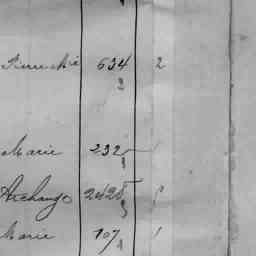 634 2
3
Marie 232
1
Archange 2428
3
Marie 107 1
1